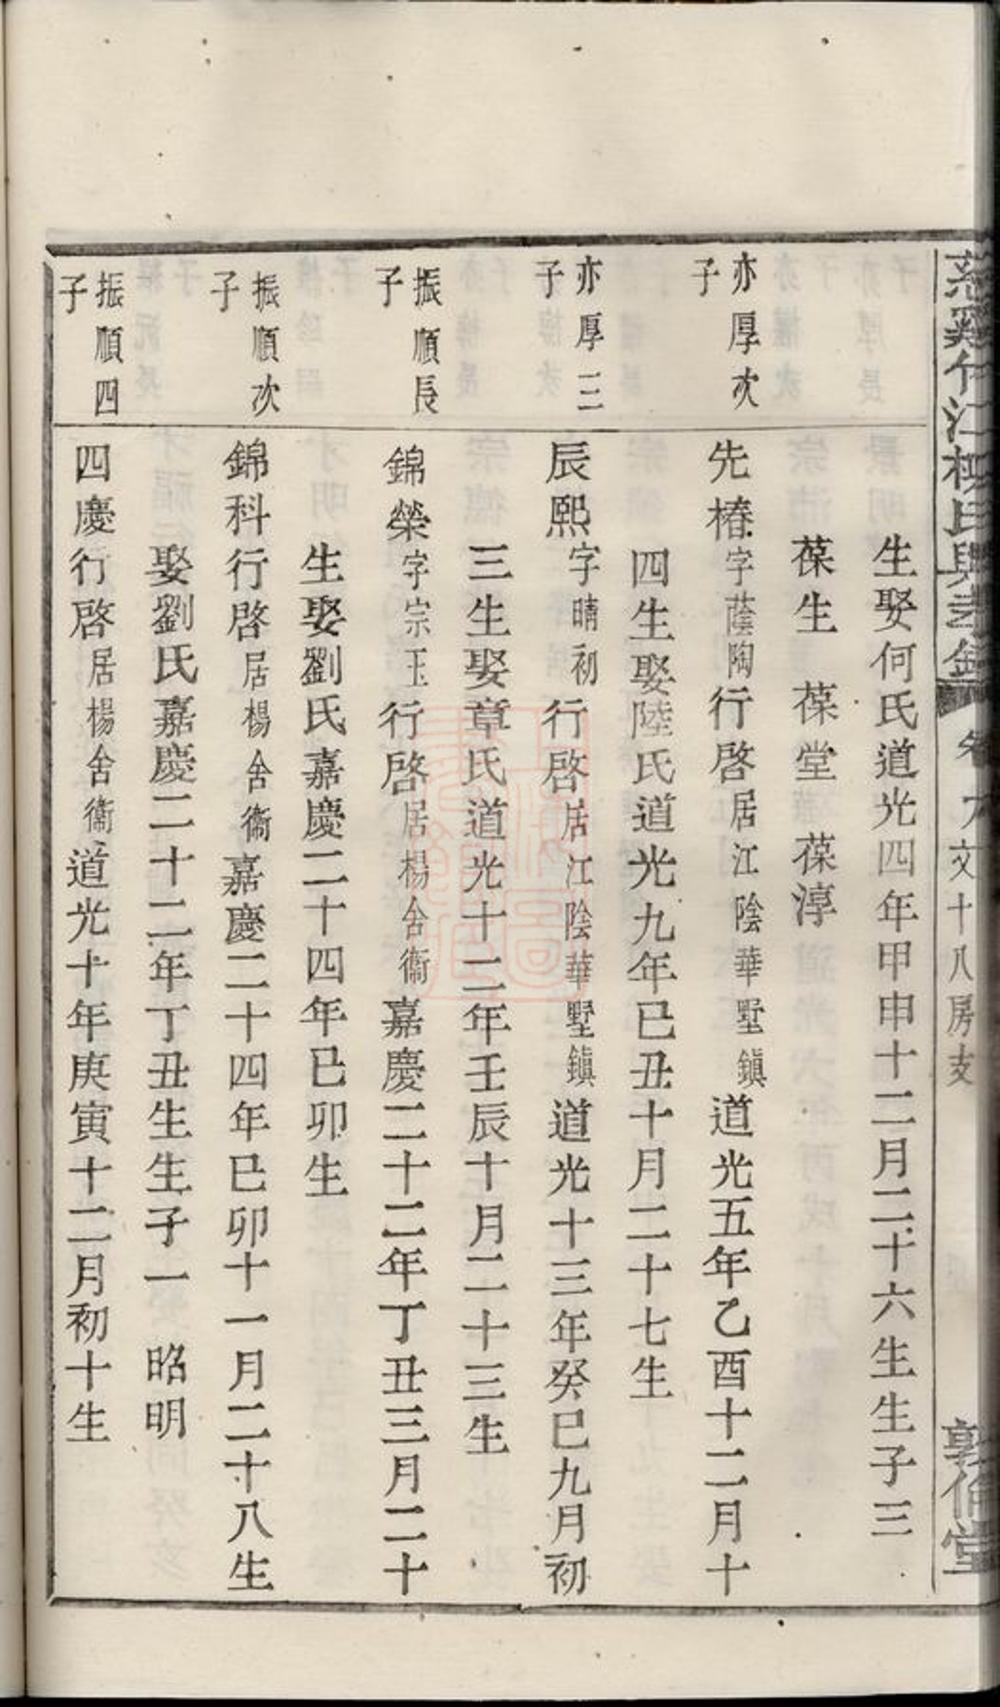 江 氏 卷 文十八房支 敦倫堂
生娶何氏道光四年甲申十二月二十六生生子三
葆生 葆堂 葆淳
亦厚次子
先椿字蔭陶行啓居江陰華墅鎮道光五年乙酉十二月十
四生娶陸氏道光九年已丑十月二十七生
亦厚三子
辰熙字晴初行啓居江陰華墅鎮道光十三年癸巳九月初
三生娶章氏道光十二年壬辰十月二十三生
振順長子
錦榮字宗玉行啓居楊舍衞嘉慶二十二年丁丑三月二十
生娶劉氏嘉慶二十四年已卯生
振順次子
錦科行啓居楊舍衞嘉慶二十四年已卯十一月二十八生
娶劉氏嘉慶二十二年丁丑生生子一 昭明
振順四子
四慶行啓居楊舍衞道光十年庚寅十二月初十生